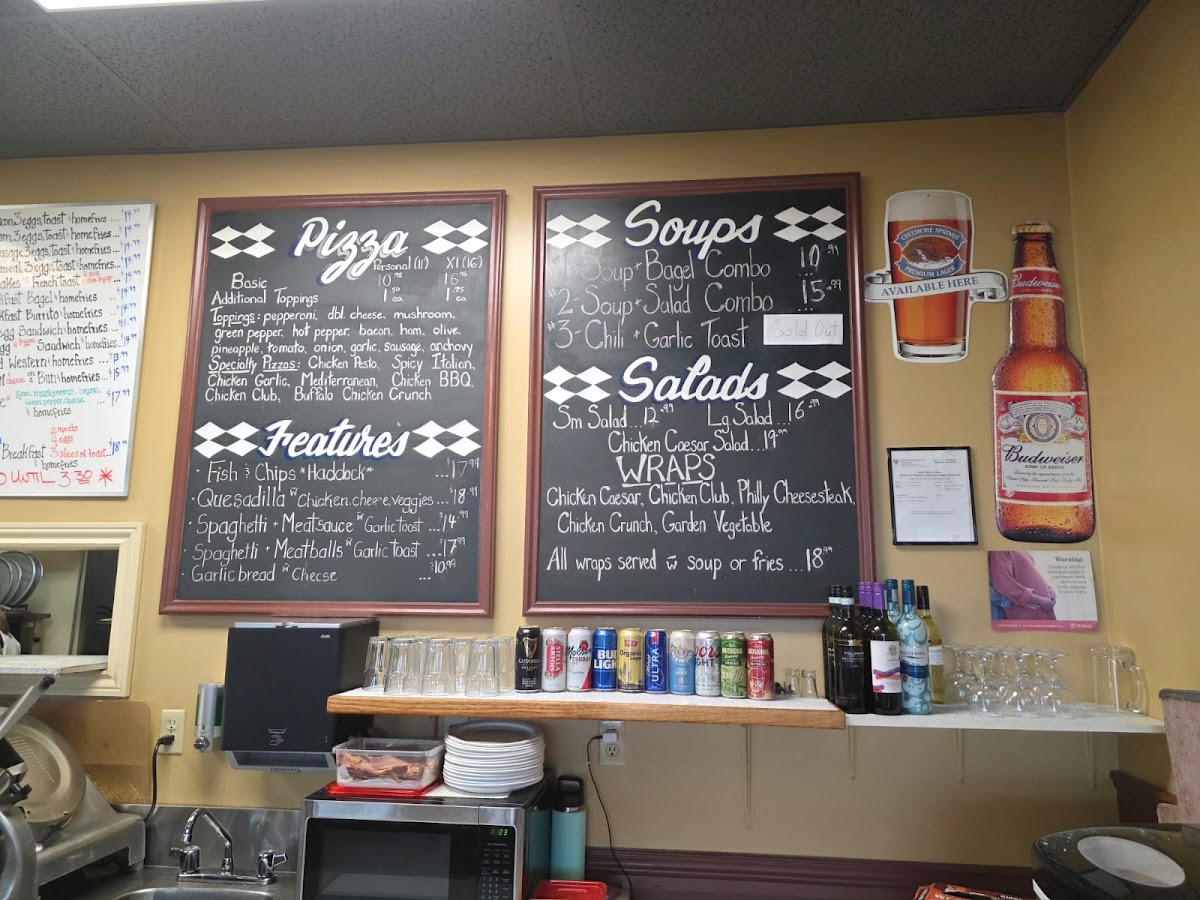 3 eggs, toast & homefries ... $14.99
3 eggs, toast & homefries ...
3 eggs, toast & homefries ...
3 eggs, toast & homefries ...
French Toast
Bagel & homefries
Burrito & homefries
Sandwich & homefries
Sandwich & homefries
Western & homefries ... $13.99
cheese on Bun & homefries ... $15.99
$17.99
& homefries
2 meats
4 eggs
Breakfast 3 slices of toast ... $18.99
& homefries
UNTIL 3:30 *
Pizza
Personal (11) Xl (16)
Basic 10.95 16.95
Additional Toppings 1.50 ea 1.75 ea
Toppings: pepperoni, dbl. cheese, mushroom,
green pepper, hot pepper, bacon, ham, olive,
pineapple, tomato, onion, garlic, sausage, anchovy
Specialty Pizzas: Chicken Pesto, Spicy Italian,
Chicken Garlic, Mediterranean, Chicken BBQ,
Chicken Club, Buffalo Chicken Crunch
Features
· Fish & Chips *Haddock* ...$17.99
· Quesadilla w Chicken, cheese, veggies...$18.99
· Spaghetti + Meatsauce w Garlic toast ...$14.99
· Spaghetti + Meatballs w Garlic toast ...$17.99
Garlic bread w Cheese ...$10.99
Soups
Soup + Bagel Combo 10.99
#2 - Soup + Salad Combo 15.99
#3 - Chili + Garlic Toast Sold Out
Salads
Sm Salad...12.99 Lg Salad...16.99
Chicken Caesar Salad...19.99
WRAPS
Chicken Caesar, Chicken Club, Philly Cheesesteak,
Chicken Crunch, Garden Vegetable
All wraps served w soup or fries...18.99
CREEMORE SPRINGS
PREMIUM LAGER
AVAILABLE HERE
Budweiser
Budweiser
KING OF BEERS
Warning:
GUINNESS
STELLA ARTOIS
Molson
BUD LIGHT
Organic
ULTRA
MUSKOKA
MUSKOKA
1:23